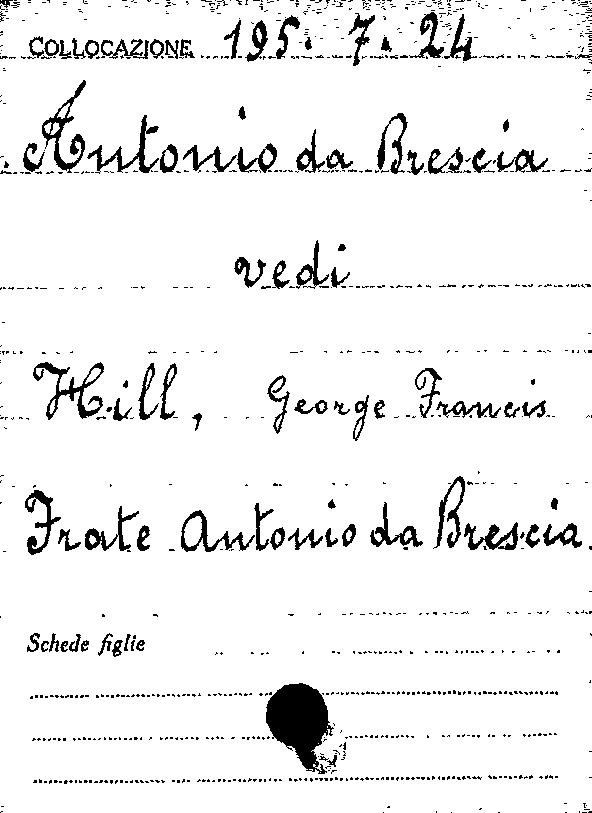 COLLOCAZIONE 195. 7. 24
Antonio da Brescia
vedi
Hill, George Francis
Frate Antonio da Brescia.
Schede figlie